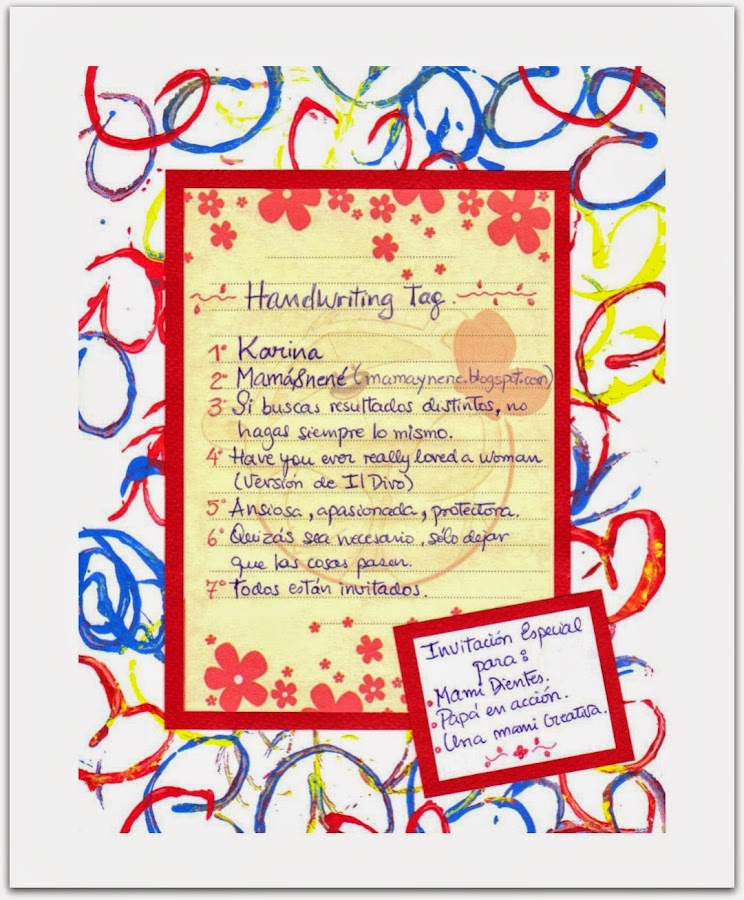 Handwriting Tag.
1º Karina
2º Mamá&nené (mamaynene.blogspot.com)
3º Si buscas resultados distintos, no
hagas siempre lo mismo.
4º Have you ever really loved a woman
(Versión de Il Divo)
5º Ansiosa, apasionada, protectora.
6º Quizás sea necesario, sólo dejar
que las cosas pasen.
7º Todos están invitados.
Invitación Especial
para:
Mami Dientes.
Papá en acción.
Una mami Creativa.